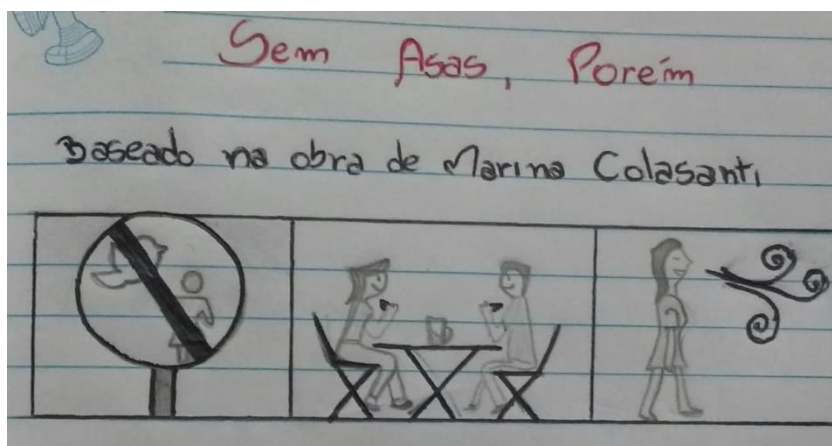 Sem Asas, Porém
Baseado na obra de Marina Colasanti